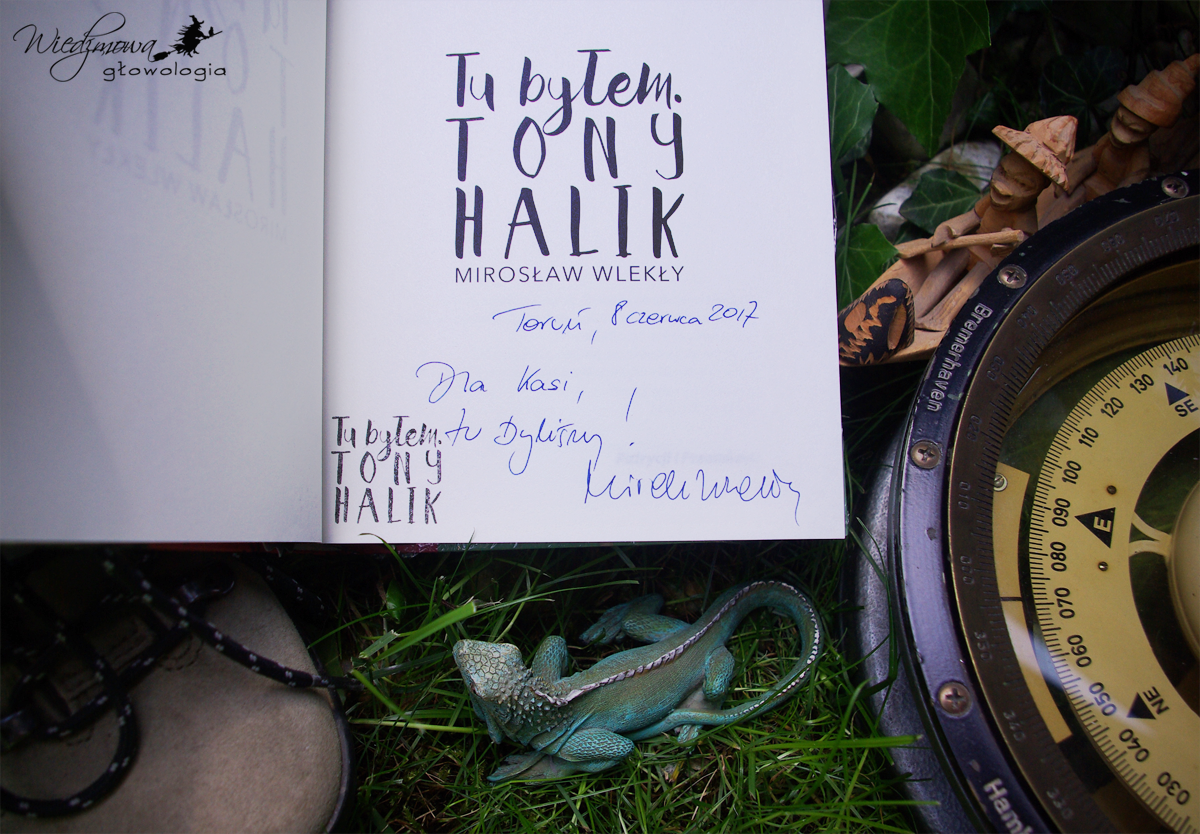 Wiedźmowa
głowologia
Tu byłem.
TONY
HALIK
MIROSŁAW WLEKŁY
Toruń, 8 czerwca 2017
Dla Kasi,
tu byliśmy!
Mirek Wlekły
Tu byłem.
TONY
HALIK
Bremerhaven
Ham
140
SE
130
120
110
100
090
E
080
070
060
050
NE
040
030